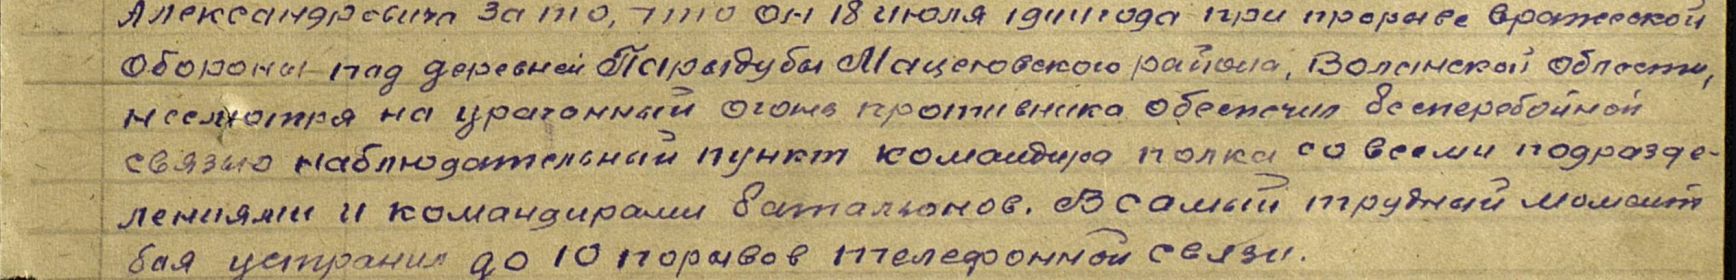 Александровича за то, что он 18 июля 1944 года при прорыве вражеской
обороны под деревней Парыдубы Мацеювского района, Волынской области,
несмотря на ураганный огонь противника обеспечил бесперебойной
связью наблюдательный пункт командира полка со всеми подразде-
лениями и командирами батальонов. В самый трудный момент
боя устранил до 10 порывов телефонной связи.